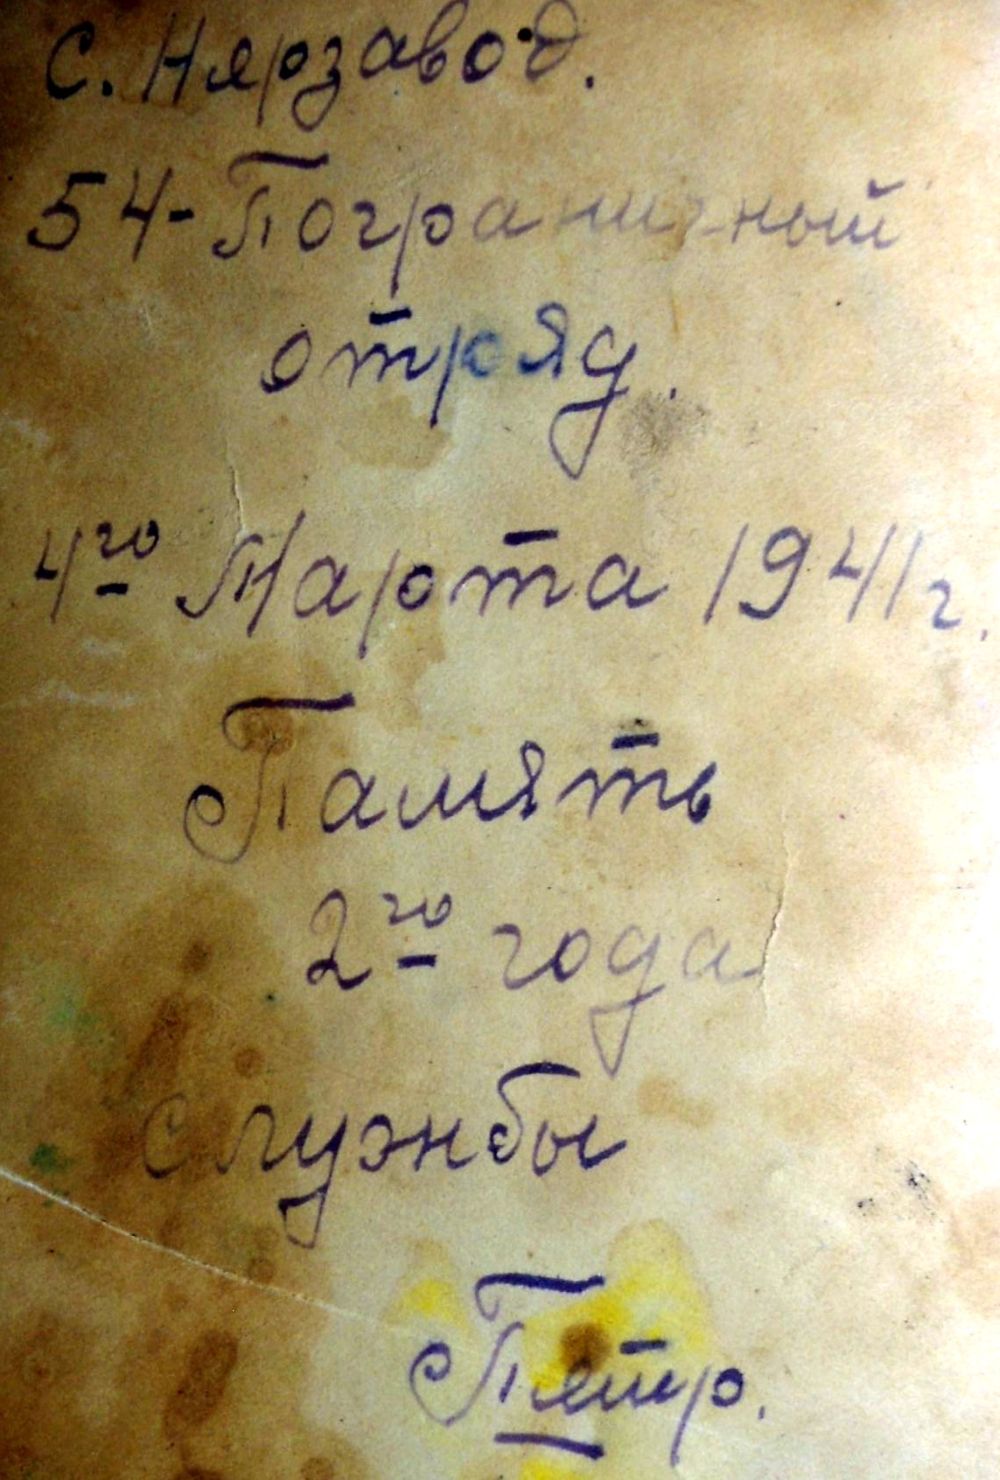 с. Нярзавод.
54-Пограничный
отряд.
4го Марта 1941г.
Память
2го года
службы
Пятр.